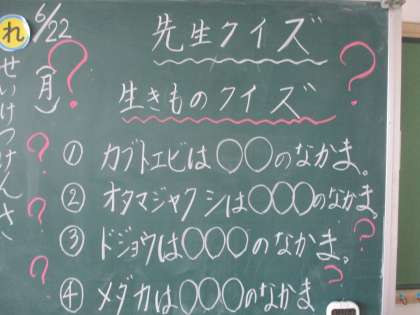 れ
6/22
(月)
せいけつけんさ
先生クイズ
生きものクイズ
① カブトエビは○○のなかま。
② オタマジャクシは○○○のなかま。
③ ドジョウは○○○のなかま。
④ メダカは○○○のなかま
? ? ? ? ? ? ?